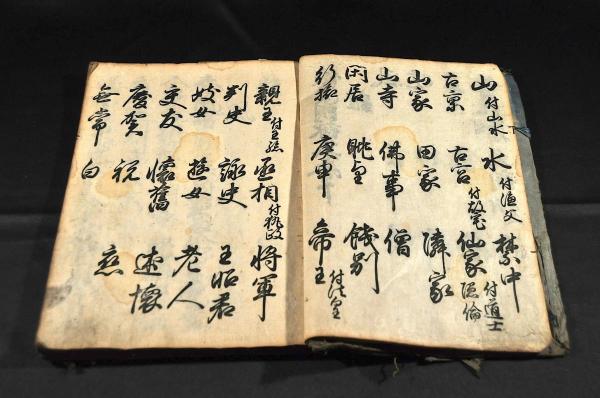 山付山水 水付漁父 禁中
古京 古宮付故宅 仙家付道士隠倫
山家 田家 隣家
山寺 佛事 僧
閑居 眺望 餞別
行旅 庚申 帝王付法皇
親王付王孫 丞相付執政 将軍
刺史 詠史 王昭君
妓女 遊女 老人
交友 懐舊 述懐
慶賀 祝 恋
無常 白